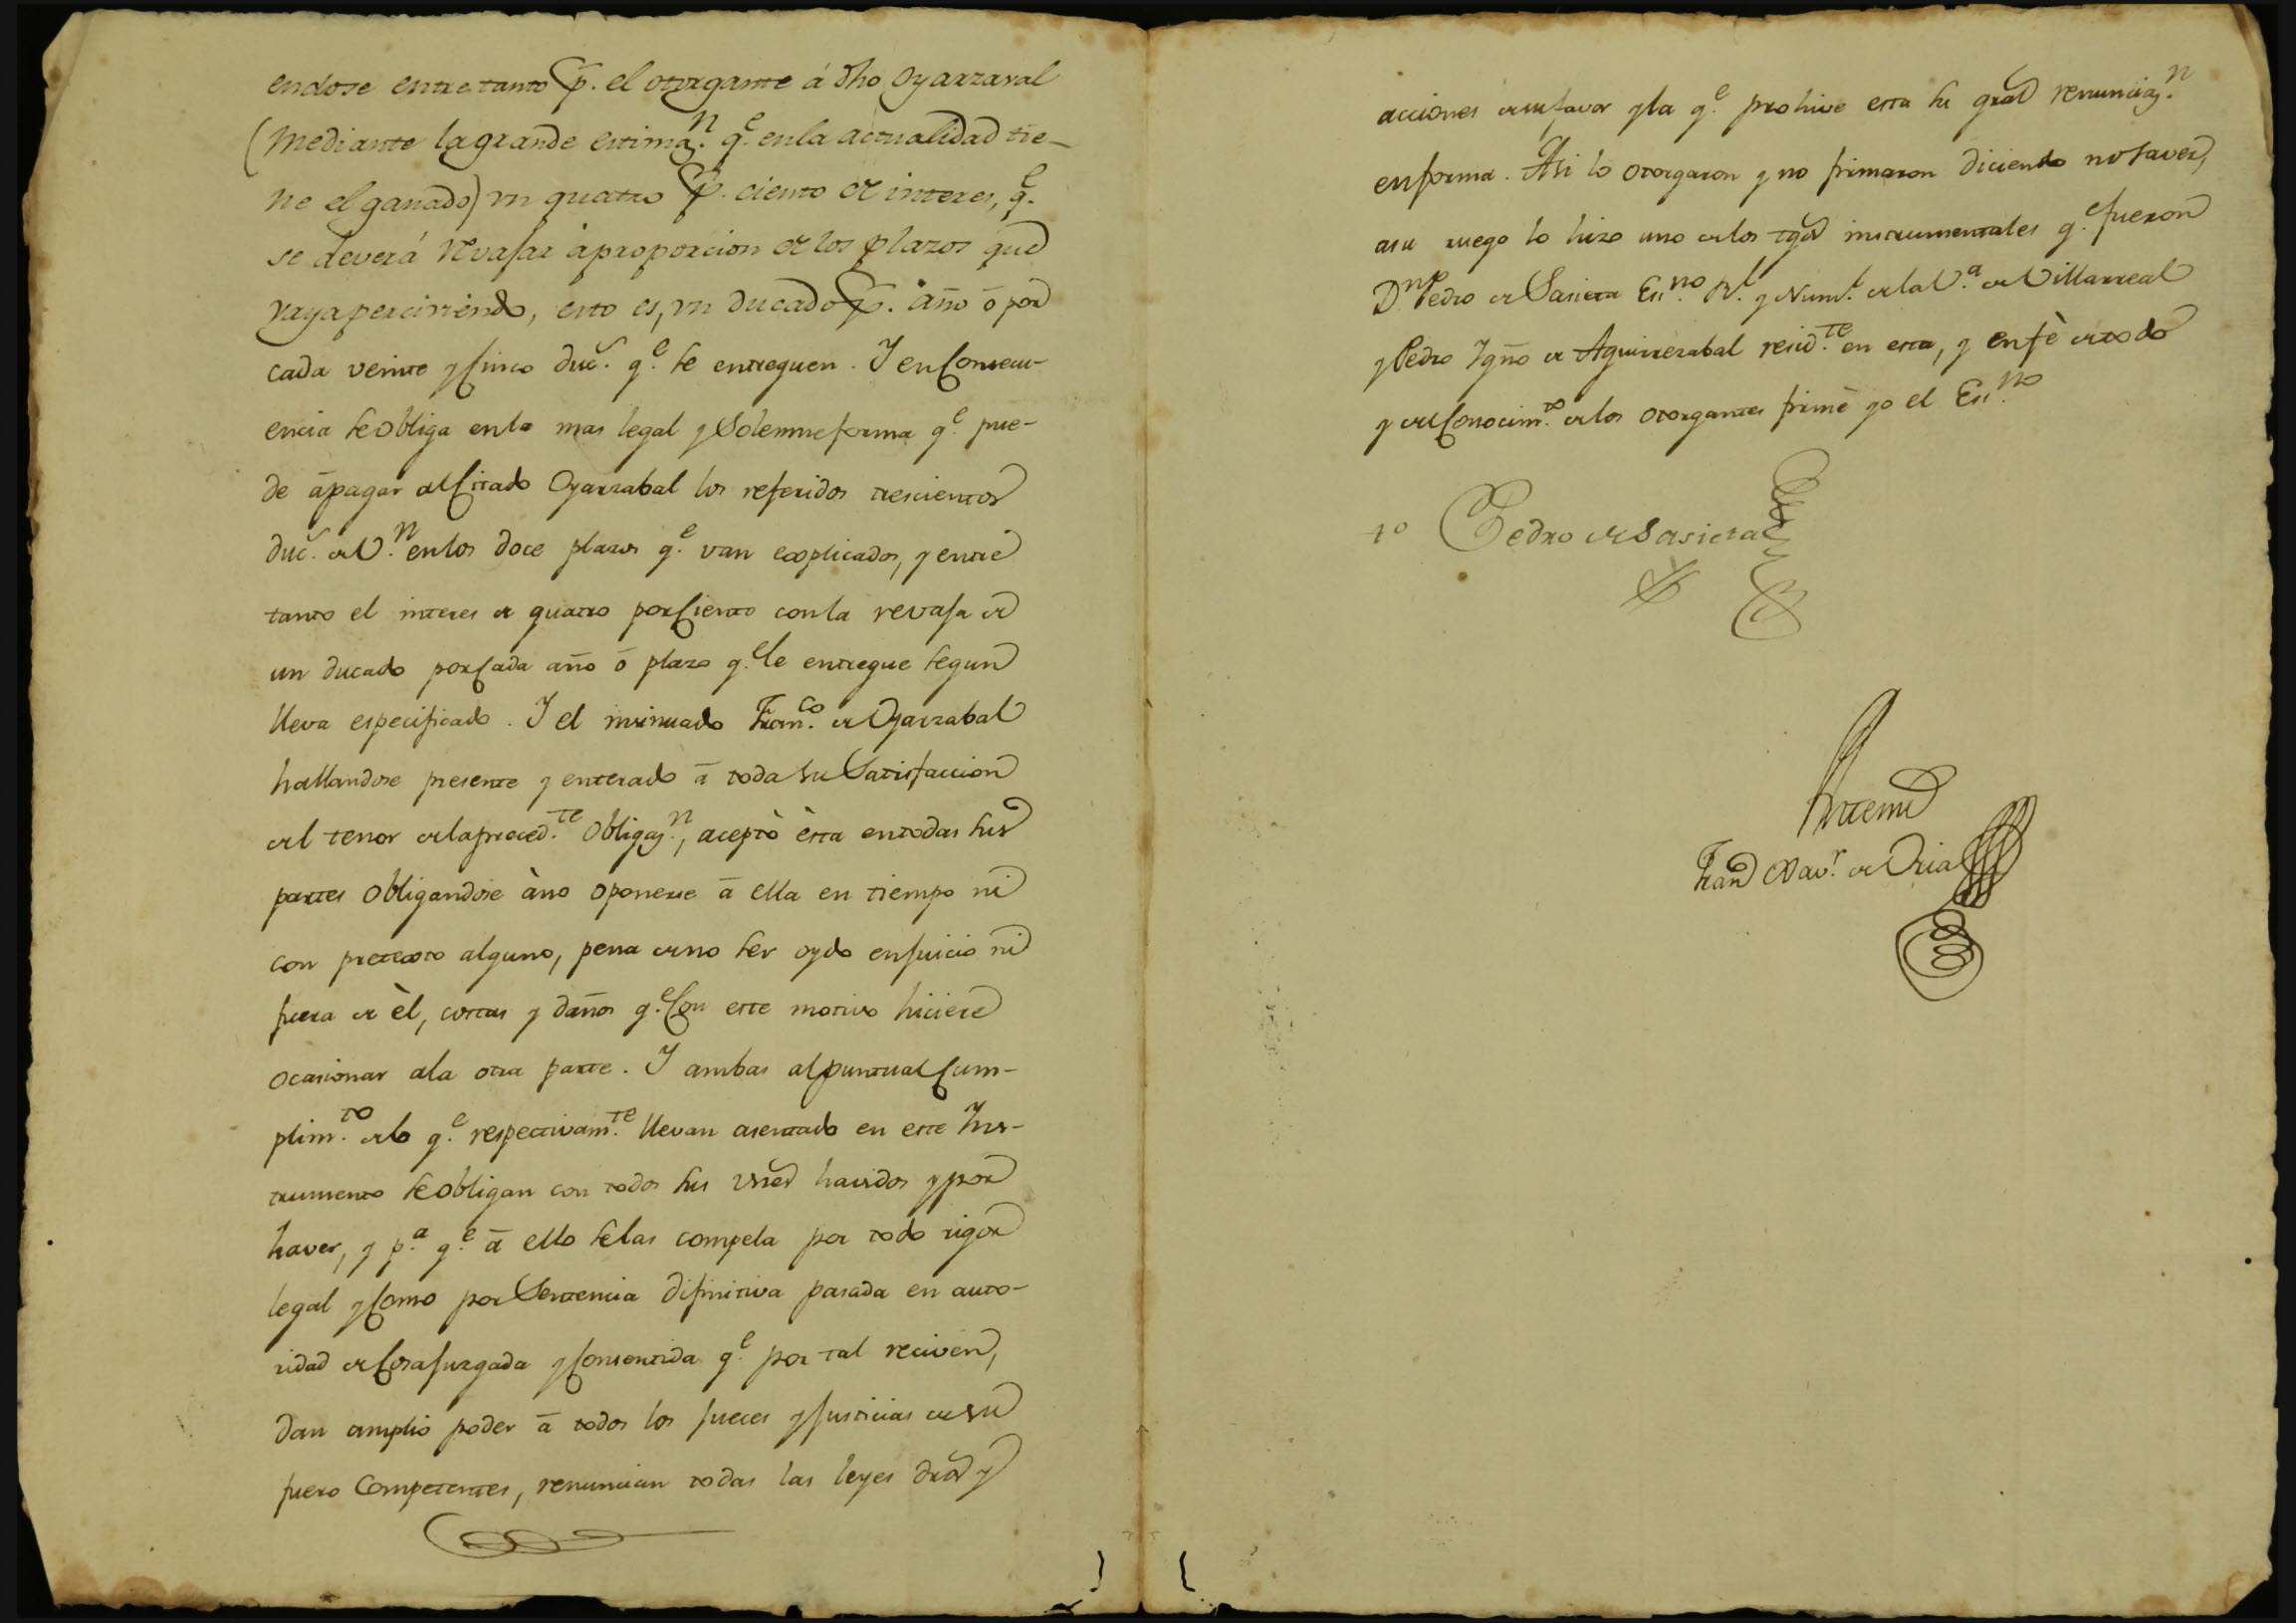 endose entre tanto p. el otorgante á dho Oyarzaval
(mediante la grande estimaz.n q.e en la actualidad tie-
ne el ganado) un quatro p. ciento de interes, q.e
se deverá revajar á proporcion de los plazos que
vaya perciviendo, esto es, un ducado p. año ó por
cada veinte y cinco duc.s q.e se entreguen. Y en consecu-
encia se obliga en la mas legal y solemne forma q.e pue-
de á pagar al citado Oyarzabal los referidos trescientos
duc.s de v.n en los doce plazos q.e van explicados, y entre
tanto el interes de quatro por ciento con la revaja de
un ducado por cada año ó plazo q.e le entregue segun
lleva especificado. Y el insinuado Fran.co de Oyarzabal
hallandose presente y enterado á toda su satisfaccion
del tenor de la preced.te obligaz.n, aceptó ésta en todas sus
partes obligandose á no oponerse á ella en tiempo ni
con pretexto alguno, pena de no ser oydo en juicio ni
fuera de él, costas y daños q.e con este motivo hiciere
ocasionar a la otra parte. Y ambas al puntual cum-
plim.to de lo q.e respectivam.te llevan asentado en este Ins-
trumento se obligan con todos sus vnes havidos y por
haver, y p.a q.e á ello se las compela por todo rigor
legal y como por sentencia difinitiva pasada en auto-
ridad de cosa juzgada y consentida q.e por tal reciven,
dan amplio poder á todos los jueces y justicias de su
fuero competentes, renuncian todas las leyes dros y
acciones de su favor y la q.e prohive esta su gral renunciaz.n
en forma. Asi lo otorgaron y no firmaron diciendo no saver,
a su ruego lo hizo uno de los tgos instrumentales q.e fueron
D.n Pedro de Sasieta Es.no R.l y Num.l de la V.a de Villarreal
y Pedro Ygño de Aguirrezabal resid.te en esta, y en fè de todo
y del conocim.to de los otorgantes firmè yo el Es.no
t.o Pedro de Sasieta
Antemi
Fran Xav.r de Oria